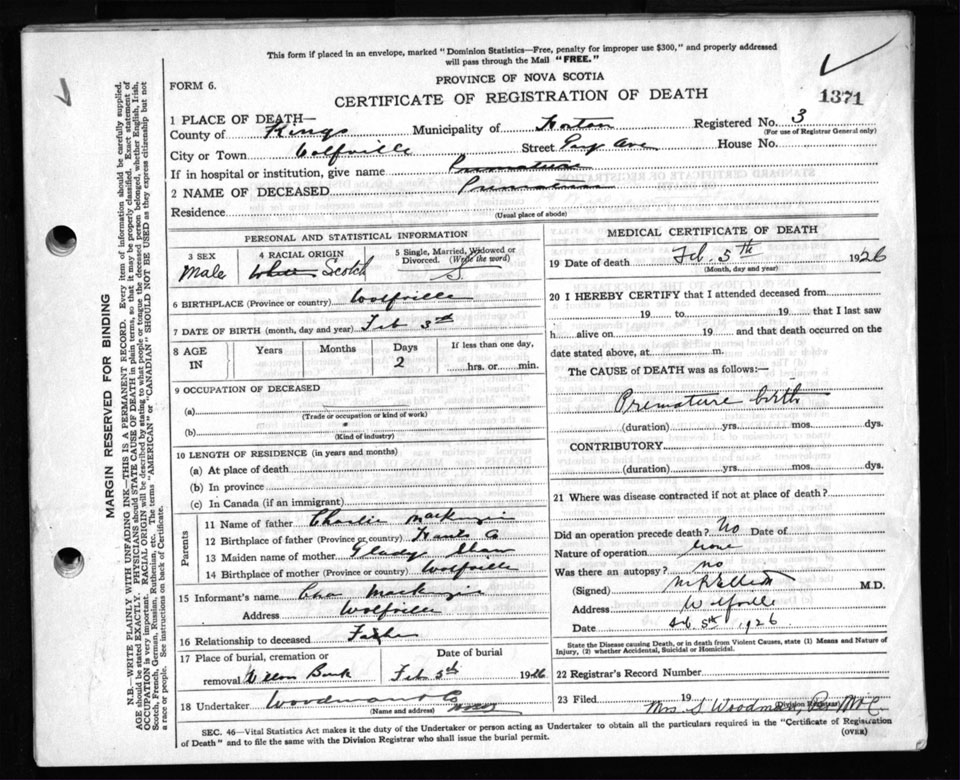 This form if placed in an envelope, marked "Dominion Statistics—Free, penalty for improper use $300," and properly addressed
will pass through the Mail "FREE."
PROVINCE OF NOVA SCOTIA
FORM 6.
CERTIFICATE OF REGISTRATION OF DEATH
1371
1 PLACE OF DEATH—
County of Kings Municipality of Horton Registered No. 3
(For use of Registrar General only)
City or Town Wolfville Street Ave House No.
If in hospital or institution, give name Premature
2 NAME OF DECEASED Premature
Residence
(Usual place of abode)
PERSONAL AND STATISTICAL INFORMATION
3 SEX 4 RACIAL ORIGIN 5 Single, Married, Widowed or Divorced. (Write the word)
Male White Scotch S
6 BIRTHPLACE (Province or country) Wolfville
7 DATE OF BIRTH (month, day and year) Feb 3rd
8 AGE IN Years Months Days If less than one day,
2 hrs. or min.
9 OCCUPATION OF DECEASED
(a)
(Trade or occupation or kind of work)
(b)
(Kind of industry)
10 LENGTH OF RESIDENCE (in years and months)
(a) At place of death
(b) In province
(c) In Canada (if an immigrant)
Parents
11 Name of father Charlie MacKenzie
12 Birthplace of father (Province or country) Hants Co
13 Maiden name of mother Glady
14 Birthplace of mother (Province or country) Wolfville
15 Informant's name Cha MacKenzie
Address Wolfville
16 Relationship to deceased Father
17 Place of burial, cremation or removal Date of burial
Willow Bank Feb 5th 1926
18 Undertaker Woodman Co
(Name and address)
MEDICAL CERTIFICATE OF DEATH
19 Date of death Feb. 5th 1926
(Month, day and year)
20 I HEREBY CERTIFY that I attended deceased from
19 to 19 that I last saw
h alive on 19 and that death occurred on the
date stated above, at m.
The CAUSE of DEATH was as follows:—
Premature birth
(duration) yrs. mos. dys.
CONTRIBUTORY
(duration) yrs. mos. dys.
21 Where was disease contracted if not at place of death?
Did an operation precede death? No Date of
Nature of operation none
Was there an autopsy? no
(Signed) M R Elliott M.D.
Address Wolfville
Date Feb 5th 1926
State the Disease causing Death, or in death from Violent Causes, state (1) Means and Nature of
Injury, (2) whether Accidental, Suicidal or Homicidal.
22 Registrar's Record Number
23 Filed 19
Mrs. S Woodman
Division Registrar
SEC. 46—Vital Statistics Act makes it the duty of the Undertaker or person acting as Undertaker to obtain all the particulars required in the "Certificate of Registration
of Death" and to file the same with the Division Registrar who shall issue the burial permit.
(OVER)
MARGIN RESERVED FOR BINDING
N.B.—WRITE PLAINLY WITH UNFADING INK—THIS IS A PERMANENT RECORD. Every item of information should be carefully supplied.
AGE should be stated EXACTLY. PHYSICIANS should STATE CAUSE OF DEATH in plain terms, so that it may be properly classified. Exact statement of
OCCUPATION is very important. RACIAL ORIGIN will be described by stating to what people or tongue the deceased person belonged, whether English, Irish,
Scotch, French, German, Russian, Ruthenian, etc. The terms "AMERICAN" or "CANADIAN" SHOULD NOT BE USED as they express citizenship but not
a race or people. See instructions on back of Certificate.